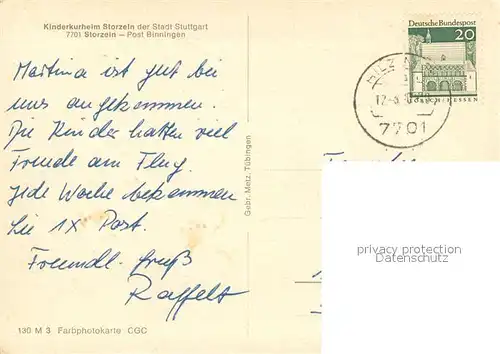 Kinderkurheim Storzeln der Stadt Stuttgart
7701 Storzeln – Post Binningen
Martina ist gut bei
uns angekommen.
Die Kinder hatten viel
Freude am Flug.
Jede Woche bekommen
Sie 1x Post.
Freundl. Gruß
Raffelt
136 M 3 Farbphotokarte CGC
Gebr. Metz, Tübingen
Deutsche Bundespost
20
LORSCH/HESSEN
7701
privacy protection
Datenschutz